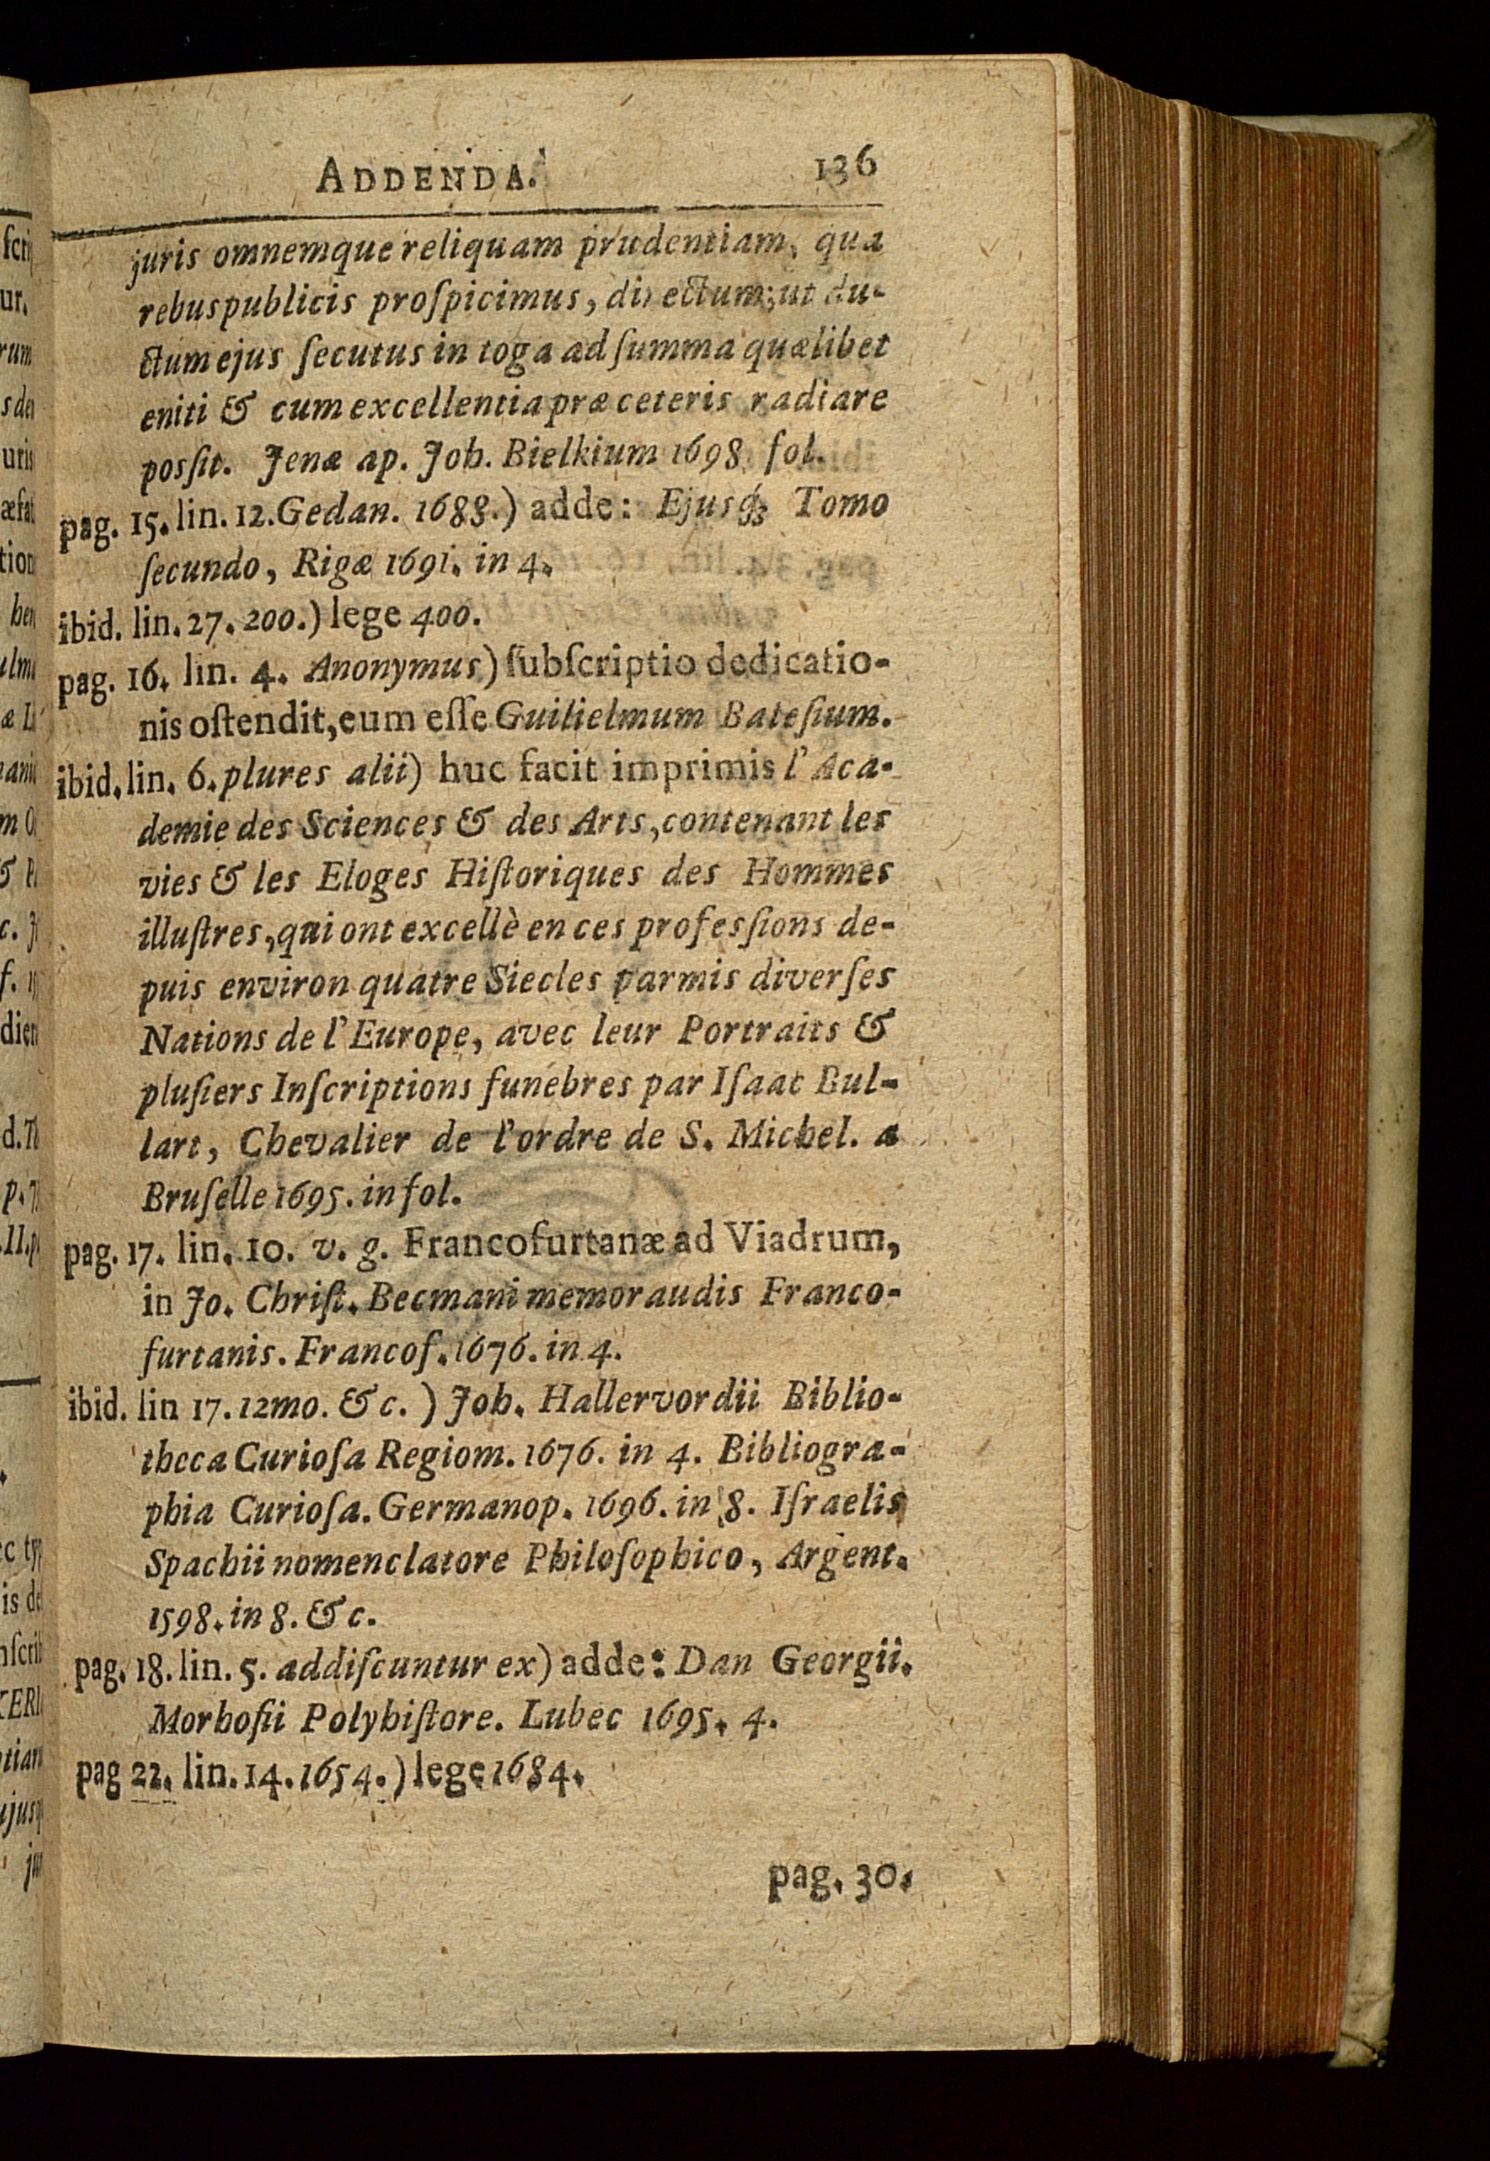 ADDENDA. 136
juris omnemque reliquam prudentiam, qua
rebuspublicis proſpicimus, directum; ut du-
ctum ejus ſecutus in toga ad ſumma quælibet
eniti & cum excellentia præ ceteris radiare
posſit. Jenæ ap. Joh. Bielkium 1698 fol.
pag. 15. lin. 12. Gedan. 1688.) adde: Ejusq́; Tomo
ſecundo, Rigæ 1691. in 4.
ibid. lin. 27. 200.) lege 400.
pag. 16. lin. 4. Anonymus) ſubſcriptio dedicatio-
nis oſtendit, eum eſſe Guilielmum Bateſium.
ibid. lin. 6. plures alii) huc facit imprimis l' Aca-
demie des Sciences & des Arts, contenant les
vies & les Eloges Hiſtoriques des Hommes
illuſtres, qui ont excellè en ces profesſions de-
puis environ quatre Siecles parmis diverſes
Nations de l' Europe, avec leur Portraits &
pluſiers Inſcriptions funebres par Iſaac Bul-
lart, Chevalier de l'ordre de S. Michel. a
Bruſelle 1695. in fol.
pag. 17. lin. 10. v. g. Francofurtanæ ad Viadrum,
in Jo. Chriſt. Becmani memoraudis Franco-
furtanis. Francof. 1676. in 4.
ibid. lin 17. 12mo. &c.) Joh. Hallervordii Biblio-
theca Curioſa Regiom. 1676. in 4. Bibliogra-
phia Curioſa. Germanop. 1696. in 8. Iſraelis
Spachii nomenclatore Philoſophico, Argent.
1598. in 8. &c.
pag. 18. lin. 5. addiſcuntur ex) adde: Dan Georgii.
Morhofii Polyhiſtore. Lubec 1695. 4.
pag 22. lin. 14. 1654.) lege 1684.
pag. 30.